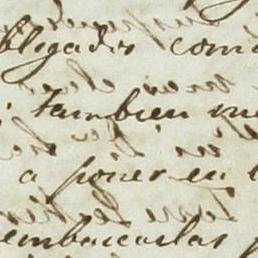 bligados com
tambien me
a poner en l
embarcarlas p